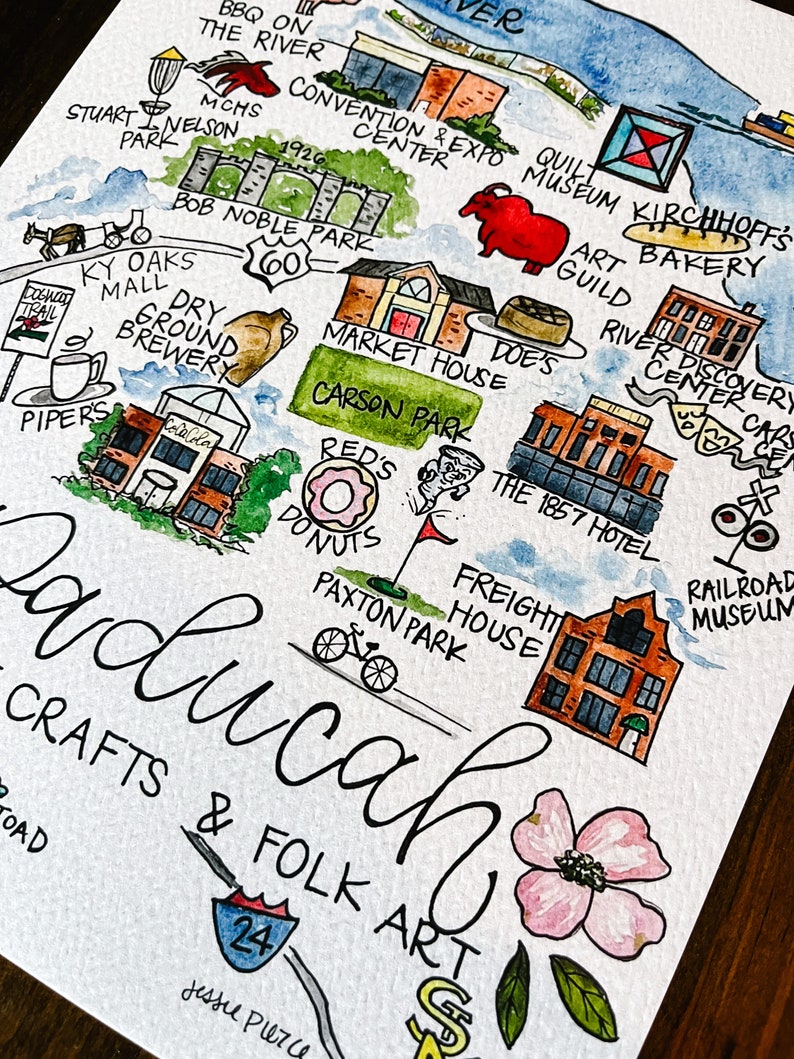 RIVER
BBQ ON
THE RIVER
STUART
NELSON
PARK
MCMS
CONVENTION & EXPO
CENTER
QUILT
MUSEUM
1926
BOB NOBLE PARK
KIRCHHOFF'S
BAKERY
60
KY OAKS
MALL
ART
GUILD
DOGWOOD
TRAIL
DRY
GROUND
BREWERY
MARKET HOUSE
DOE'S
RIVER DISCOVERY
CENTER
PIPER'S
CocaCola
CARSON PARK
CARS
CE
RED'S
DONUTS
THE 1857 HOTEL
PAXTON PARK
FREIGHT
HOUSE
RAILROAD
MUSEUM
Paducah
CRAFTS & FOLK ART
TOAD
24
Jessie Pierce